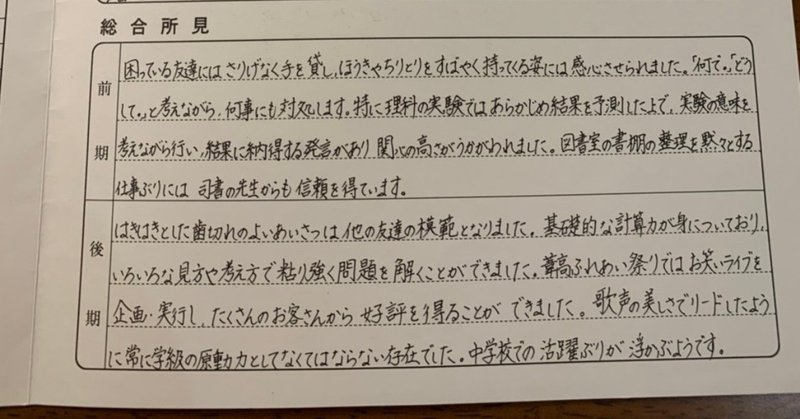 総合所見
前期
困っている友達にはさりげなく手を貸し、ほうきやちりとりをすばやく持ってくる姿には感心させられました。「何で。」「どう
して。」と考えながら、何事にも対処します。特に理科の実験ではあらかじめ結果を予測した上で、実験の意味を
考えながら行い、結果に納得する発言があり関心の高さがうかがわれました。図書室の書棚の整理を黙々とする
仕事ぶりには司書の先生からも信頼を得ています。
後期
はきはきとした歯切れのよいあいさつは他の友達の模範となりました。基礎的な計算力が身についており、
いろいろな見方や考え方で粘り強く問題を解くことができました。葺高ふれあい祭りではお笑いライブを
企画・実行し、たくさんのお客さんから好評を得ることができました。歌声の美しさでリードしたよう
に常に学級の原動力としてなくてはならない存在でした。中学校での活躍ぶりが浮かぶようです。